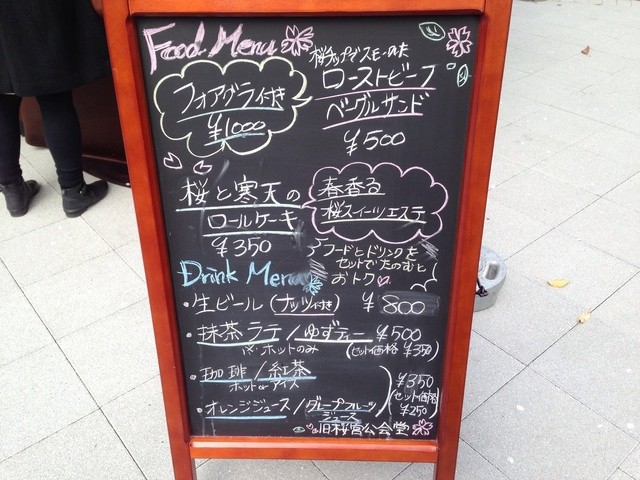 Food Menu
桜チップでスモークした
ローストビーフ
ベーグルサンド
¥500
フォアグラ付き
¥1000
桜と寒天の
ロールケーキ
¥350
春香る
桜スイーツエステ
フードとドリンクを
セットでたのむと
おトク♡
Drink Menu
・生ビール(ナッツ付き) ¥800
・抹茶ラテ/ゆずティー ¥500
※ホットのみ (セット価格 ¥350)
・珈琲/紅茶
ホット or アイス
・オレンジジュース/グレープフルーツ
ジュース
¥350
(セット価格
¥250)
旧桜宮公会堂